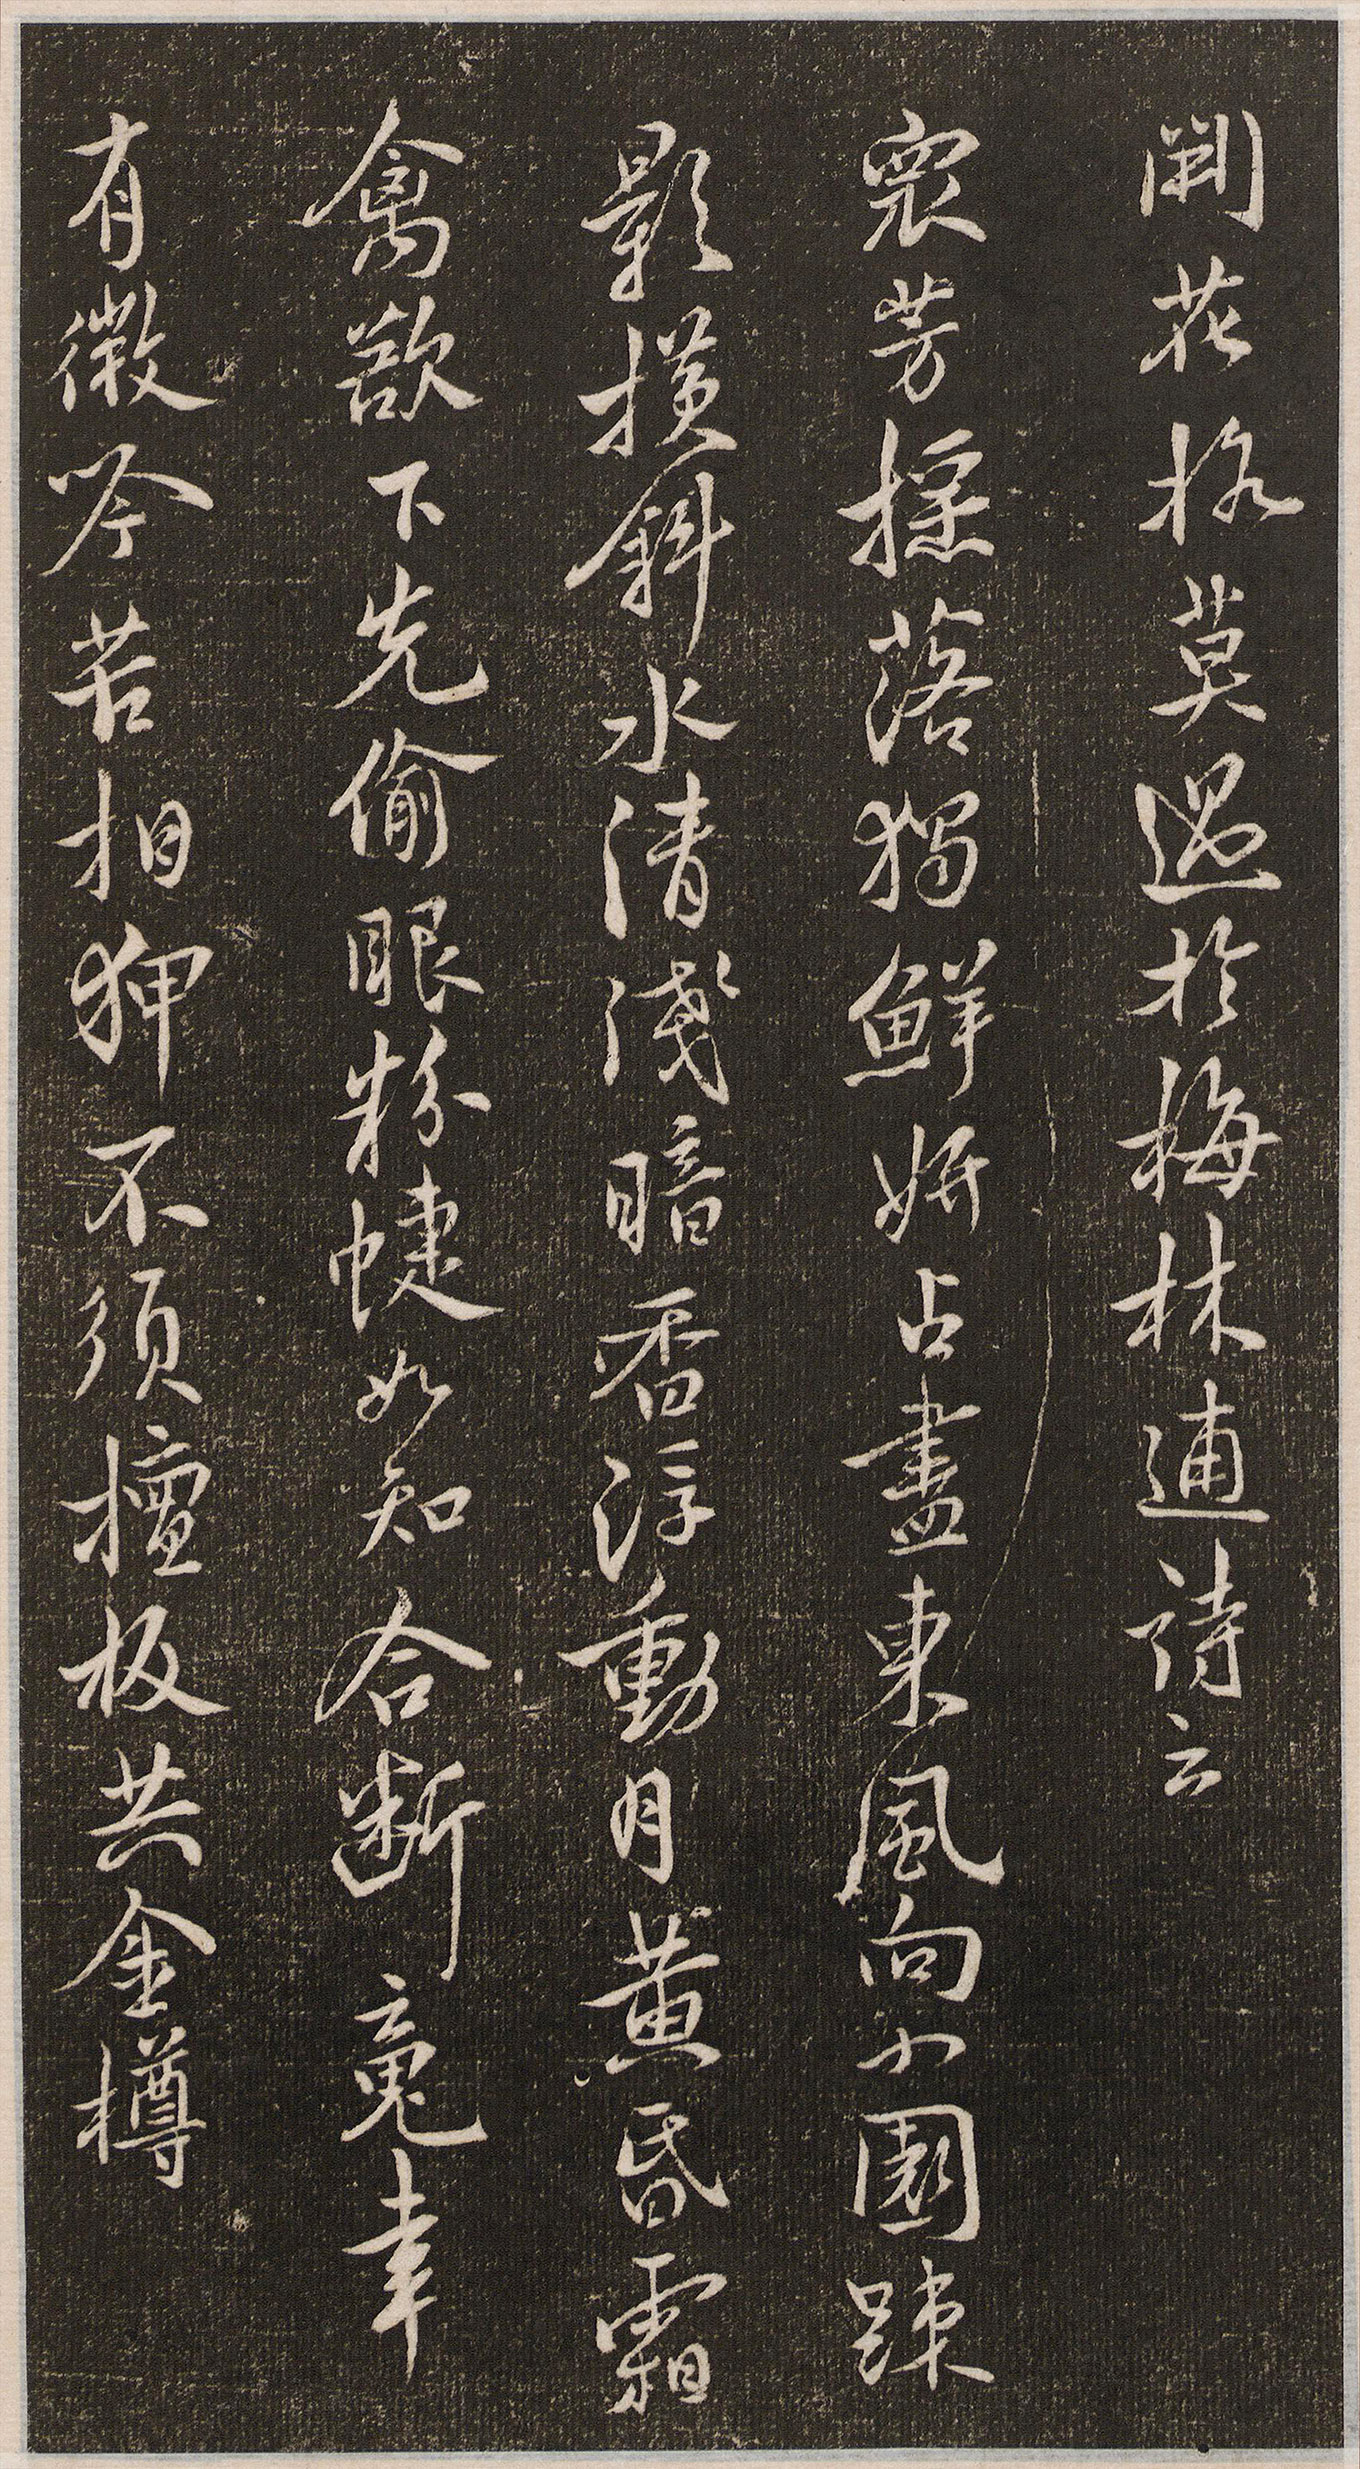 閑花格莫過於梅林逋詩云
衆芳搖落獨鮮妍占盡東風向小園踈
影橫斜水清淺暗香浮動月黃昏霜
禽欲下先偷眼粉蜨如知合斷魂幸
有微吟苦相狎不須檀板共金樽